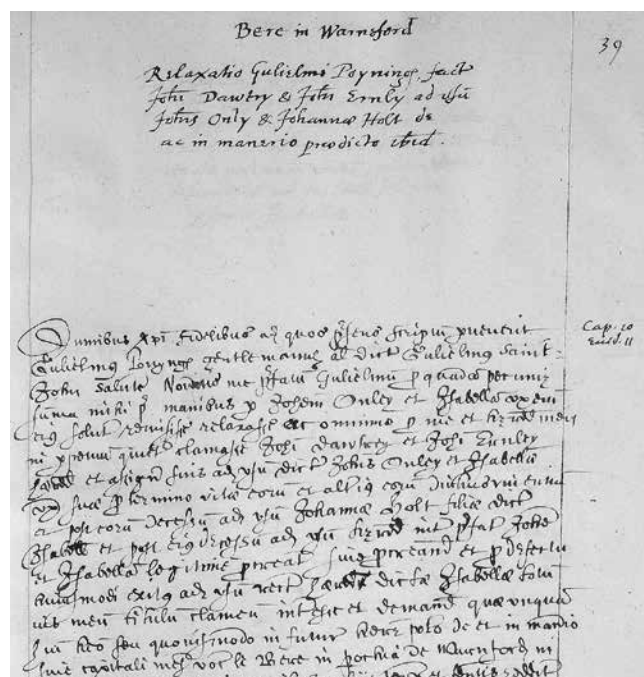 Bere in Warneford
39
Relaxatio Gulielmi Poynings fact
Johi Dawtry & Johi Emly ad usu
Johis Only & Johannæ Holt de
ac in manerio prodicto ibid.
Cap. 10
Evid. 11
Omnibus Xpi fidelibus ad quos p'sens scriptu pvenerit
Gulielmus Poynings gentleman als dict Gulielmus Saint-
John Salute Noveritis me p'fatu Gulielmu p quada pecuniæ
suma mihi p manibus p Johem Onley et Isabella uxem
eius solut remisisse relaxasse ac omnino p me et hered meis
in ppetuu quiet clamasse Johi Dawtrey et Johi Emley
hered et assign suis ad usu dict Johis Onley et Isabellæ
ux suæ p termino vitæ eoru et alti9 eoru diutius viventiu
et post eoru decessu ad usu Johannæ Holt filiæ dict
Isabell et post eius decessu ad usu hered int p'fat Johe
et Isabella legitime pcreat sive pcreand et p defectu
huiusmodi exitus ad usu rect hæred dictæ Isabellæ totu
ius meu titulu clameu interesse et demand quæ unqua
habeo seu quovismodo in futur here potero de et in manio
sive capitali mes voc le Bere in pochia de Warnford in